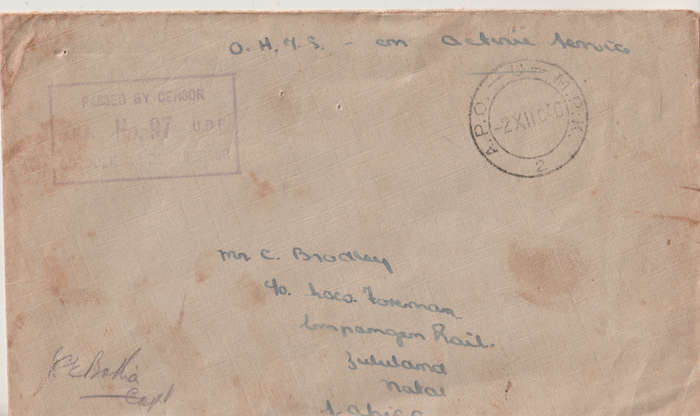 O.H.M.S. - on Active Service
PASSED BY CENSOR
No. 97 U.D.F.
A.P.O. - U - M.P.K.
-2XII
2
Mr C. Bradley
c/o Loco Foreman
Empangeni Rail.
Zululand
Natal
S. Africa
Botha
Capt